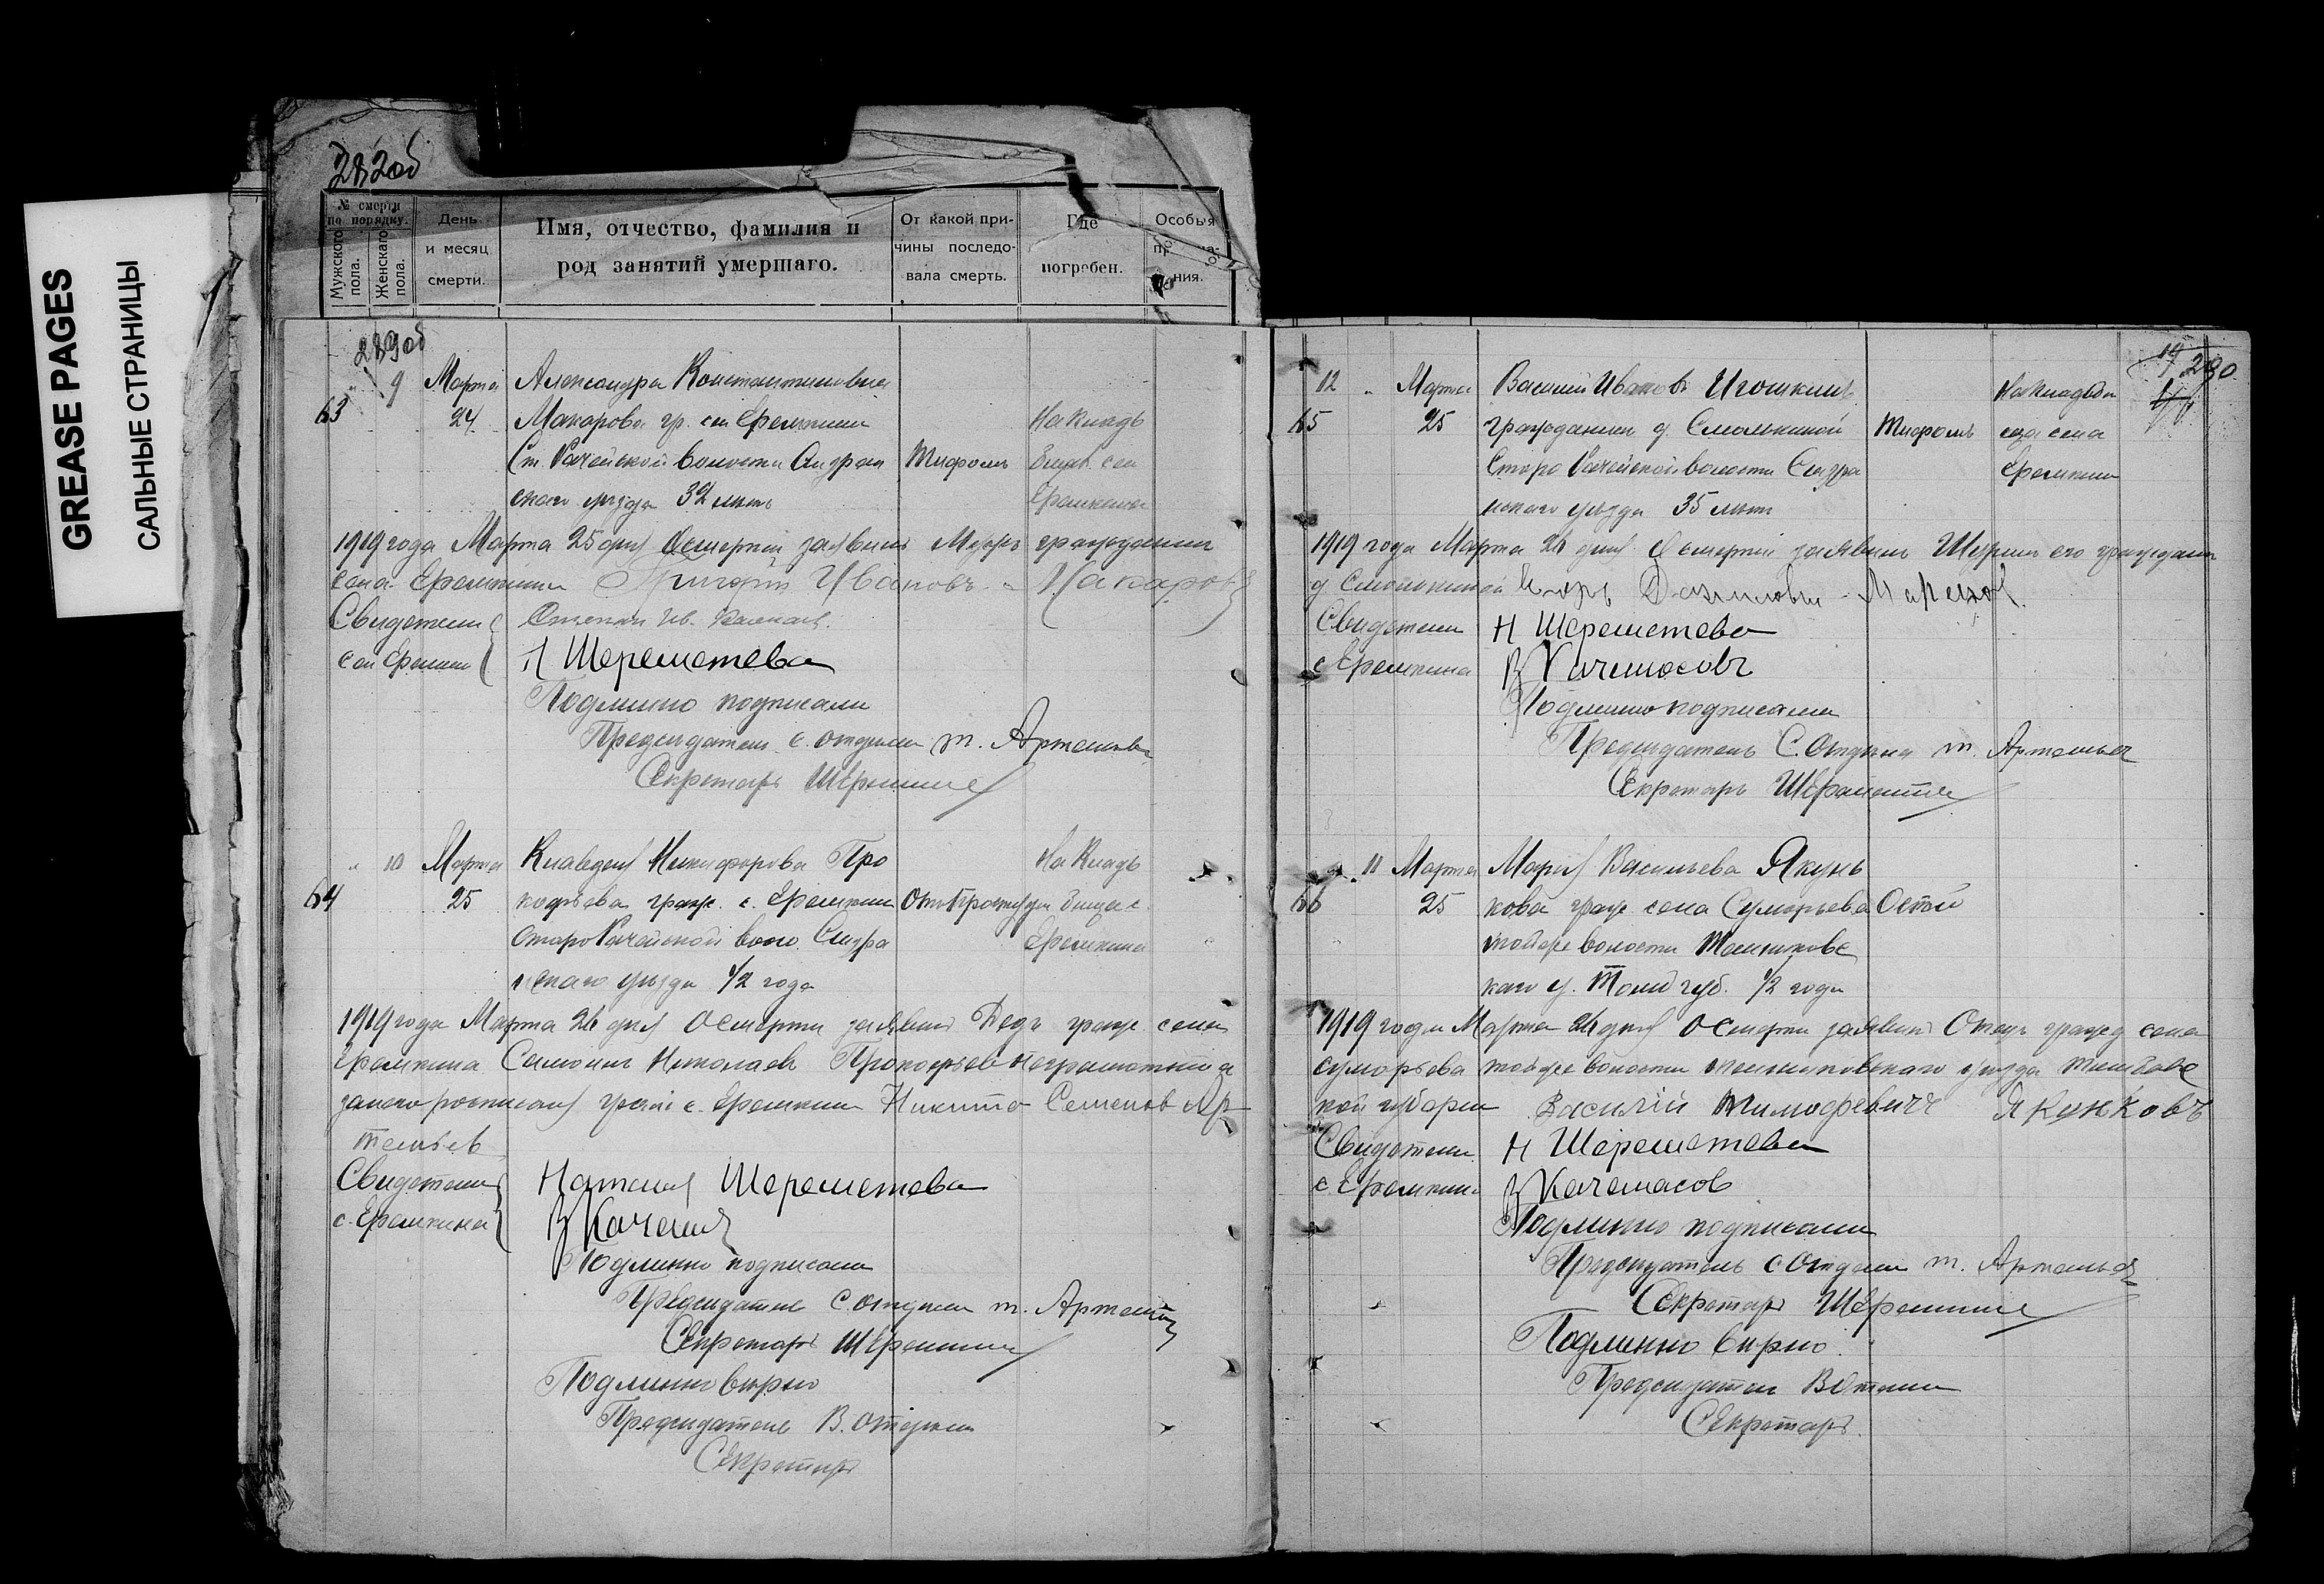 GREASE PAGES
САЛЬНЫЕ СТРАНИЦЫ
282об
№ смерти по порядку.
Мужского пола.
Женскаго пола.
День и месяц смерти.
Имя, отчество, фамилия и род занятий умершаго.
От какой причины последовала смерть.
Где погребен.
Особыя
ния.
289об
9 Марта Александра Константиновна
63 24 Макарова гр. сел Еремкина На Кладь
Ст. Рачейской волости Сызран Тифом бище сел
скаго уезда 32 лет Еремкина
1919 года Марта 25 дня О смерти заявил Муж гражданин
села Еремкина Григорий Иванов Макаров
Свидетели Степан Ив.
сел Еремкин Н Шереметева
Подлинно подписали
Председатель с. отдела т. Артемьев
Секретарь
" 10 Марта Клавдия Никифорова Про На Кладь
64 25 кофьева граж. с. Еремкин От бище с.
Старо Рачейской воло. Сызра Еремкина
нскаго уезда 1/2 года
1919 года Марта 26 дня О смерти заявил Дед граж. села
Еремкина Самойл Николаев Прокофьев неграмотный а
за него росписался граж. с. Еремкин Никита Семенов Ар
темьев
Свидетели Наталия Шереметева
с. Еремкина В
Подлинно подписали
Председатель С. отдела т. Артемьев
Секретарь
Подлинно верно
Председатель В. отдела
Секретарь
19
290
12 " Марта Василий Иванов Игошкин На кладби
65 25 гражданин д. Смолькиной Тифом ща села
Старо Рачейской волости Сызра Еремкина
нскаго уезда 35 лет
1919 года Марта 26 дня О смерти заявил Шурин его граждан
д Смолькиной
Свидетели Н Шереметева
с Еремкина В Качемасовъ
Подлинно подписали
Председатель С. Отдела т. Артемьев
Секретарь
" 11 Марта Мария Васильева Якунь
66 25 кова граж. села Суморьева Оспой
тойже волости Темниковс
каго у. Тамб губ. 1/2 года
1919 года Марта 26 дня О смерти заявил Отец гражд села
Суморьева тойже волости Темниковскаго уезда Тамбовс
кой губерн Василий Тимофевичъ Якунковъ
Свидетели Н Шереметева
с. Еремкин В Качемасов
Подлинно подписали
Председатель С Отдела т. Артемьев
Секретарь
Подлинно верно
Председатель В Отдела
Секретарь